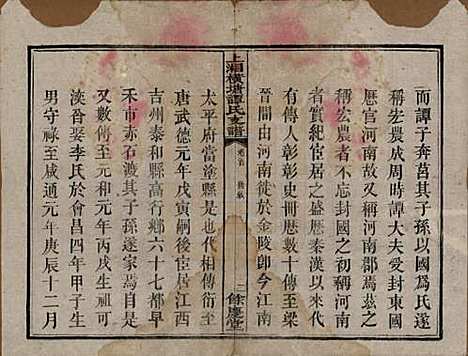 而譚子奔莒其子孫以國為氏遂
稱宏農成周時譚大夫受封東國
歷官河南故又稱河南郡焉茲之
稱宏農者不忘封國之初稱河南
者實紀宦居之盛歷秦漢以來代
有傳人彰彰史冊歷數十傳至梁
晉間由河南徙於金陵卽今江南
上湘橫塘譚氏支譜
卷首
二
餘慶堂
太平府當塗縣是也代相傳衍至
唐武德元年戊寅嗣後宦居江西
吉州泰和縣高行鄉六十七都早
禾市赤石渡其子孫遂家焉自是
又數傳至文德元年丙戌生祖可
李氏於會昌四年甲子生
男守祿至咸通元年庚辰十二月